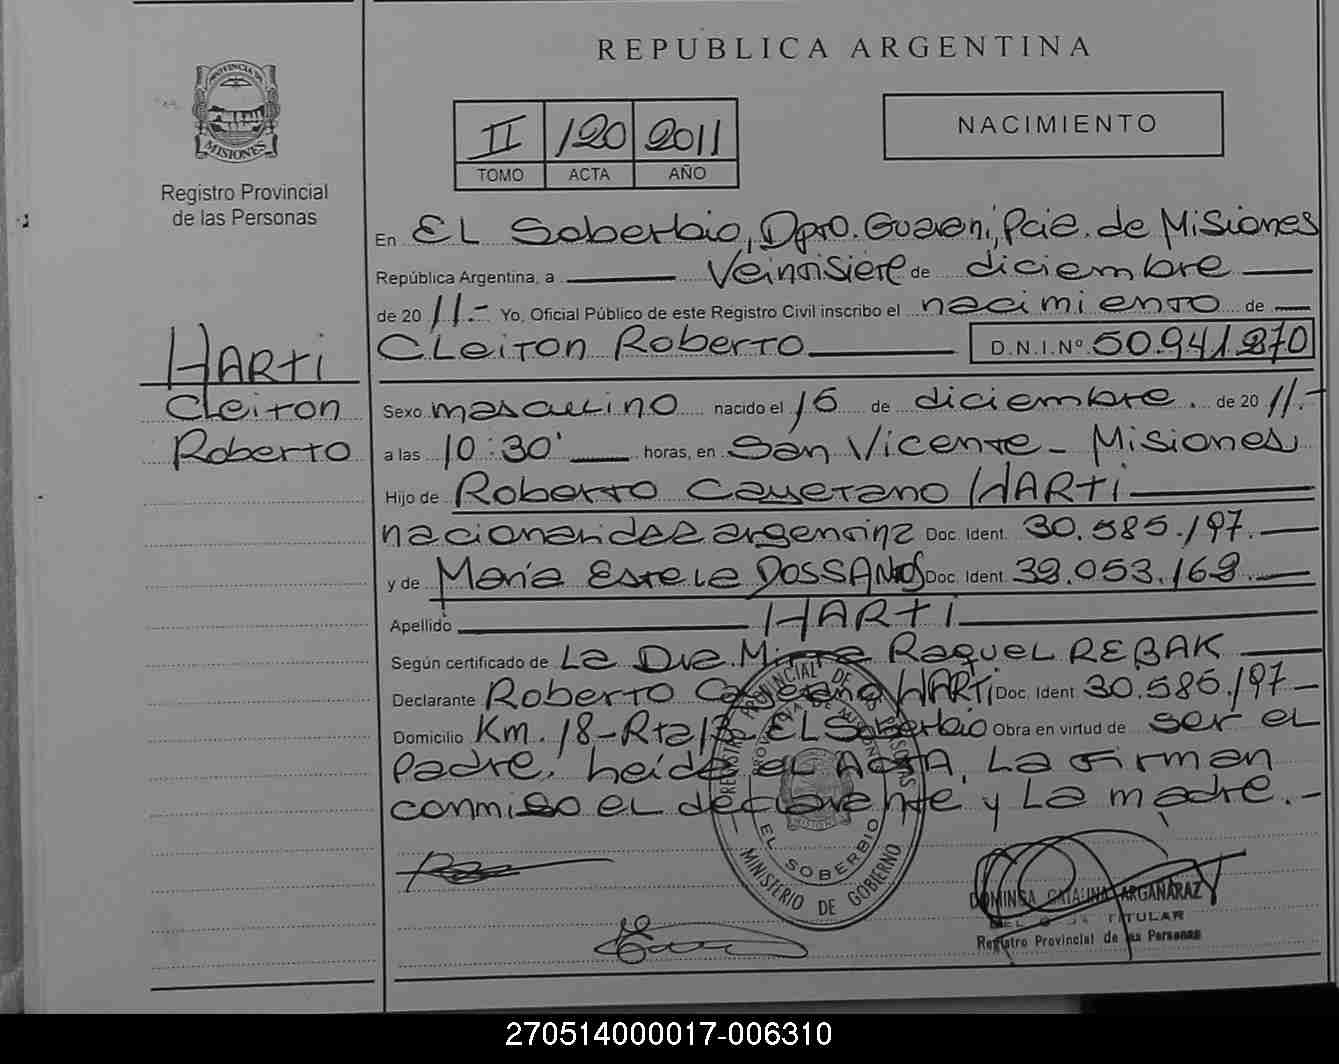 REPUBLICA ARGENTINA
PROVINCIA DE
MISIONES
Registro Provincial
de las Personas
II 120 2011
TOMO ACTA AÑO
NACIMIENTO
En El Soberbio, Dpto. Guaraní, Pcia. de Misiones
República Argentina, a Veintisiete de diciembre
de 20 11.- Yo, Oficial Público de este Registro Civil inscribo el nacimiento de
Cleiton Roberto D.N.I.Nº 50.941.270
HARTI
Cleiton
Roberto
Sexo masculino nacido el 16 de diciembre. de 20 11.-
a las 10:30' horas, en San Vicente - Misiones
Hijo de Roberto Cayetano HARTI
nacionalidad argentina Doc. Ident. 30.585.197.
y de María Estela DOSSANTOS Doc. Ident. 39.053.169.
Apellido HARTI
Según certificado de La Dra. Mirta Raquel REBAK
Declarante Roberto Cayetano HARTI Doc. Ident. 30.585.197
Domicilio Km. 18-Rta 13- El Soberbio Obra en virtud de ser el
Padre. Leída el Acta, La firman
conmigo el declarante y La madre.-
EL SOBERBIO
MINISTERIO DE GOBIERNO
DOMINGA CATALINA ARGAÑARAZ
TITULAR
Registro Provincial de las Personas
270514000017-006310